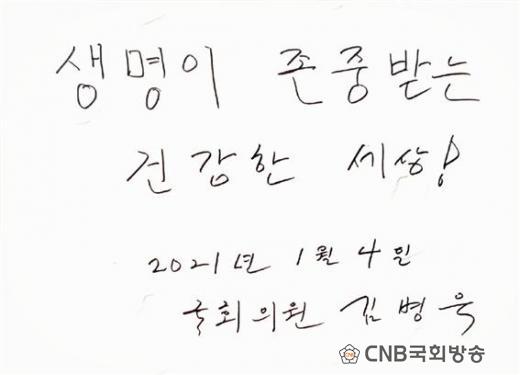 생명이 존중받는
건강한 세상!
2021년 1월 4일
국회의원 김병욱
CNB국회방송